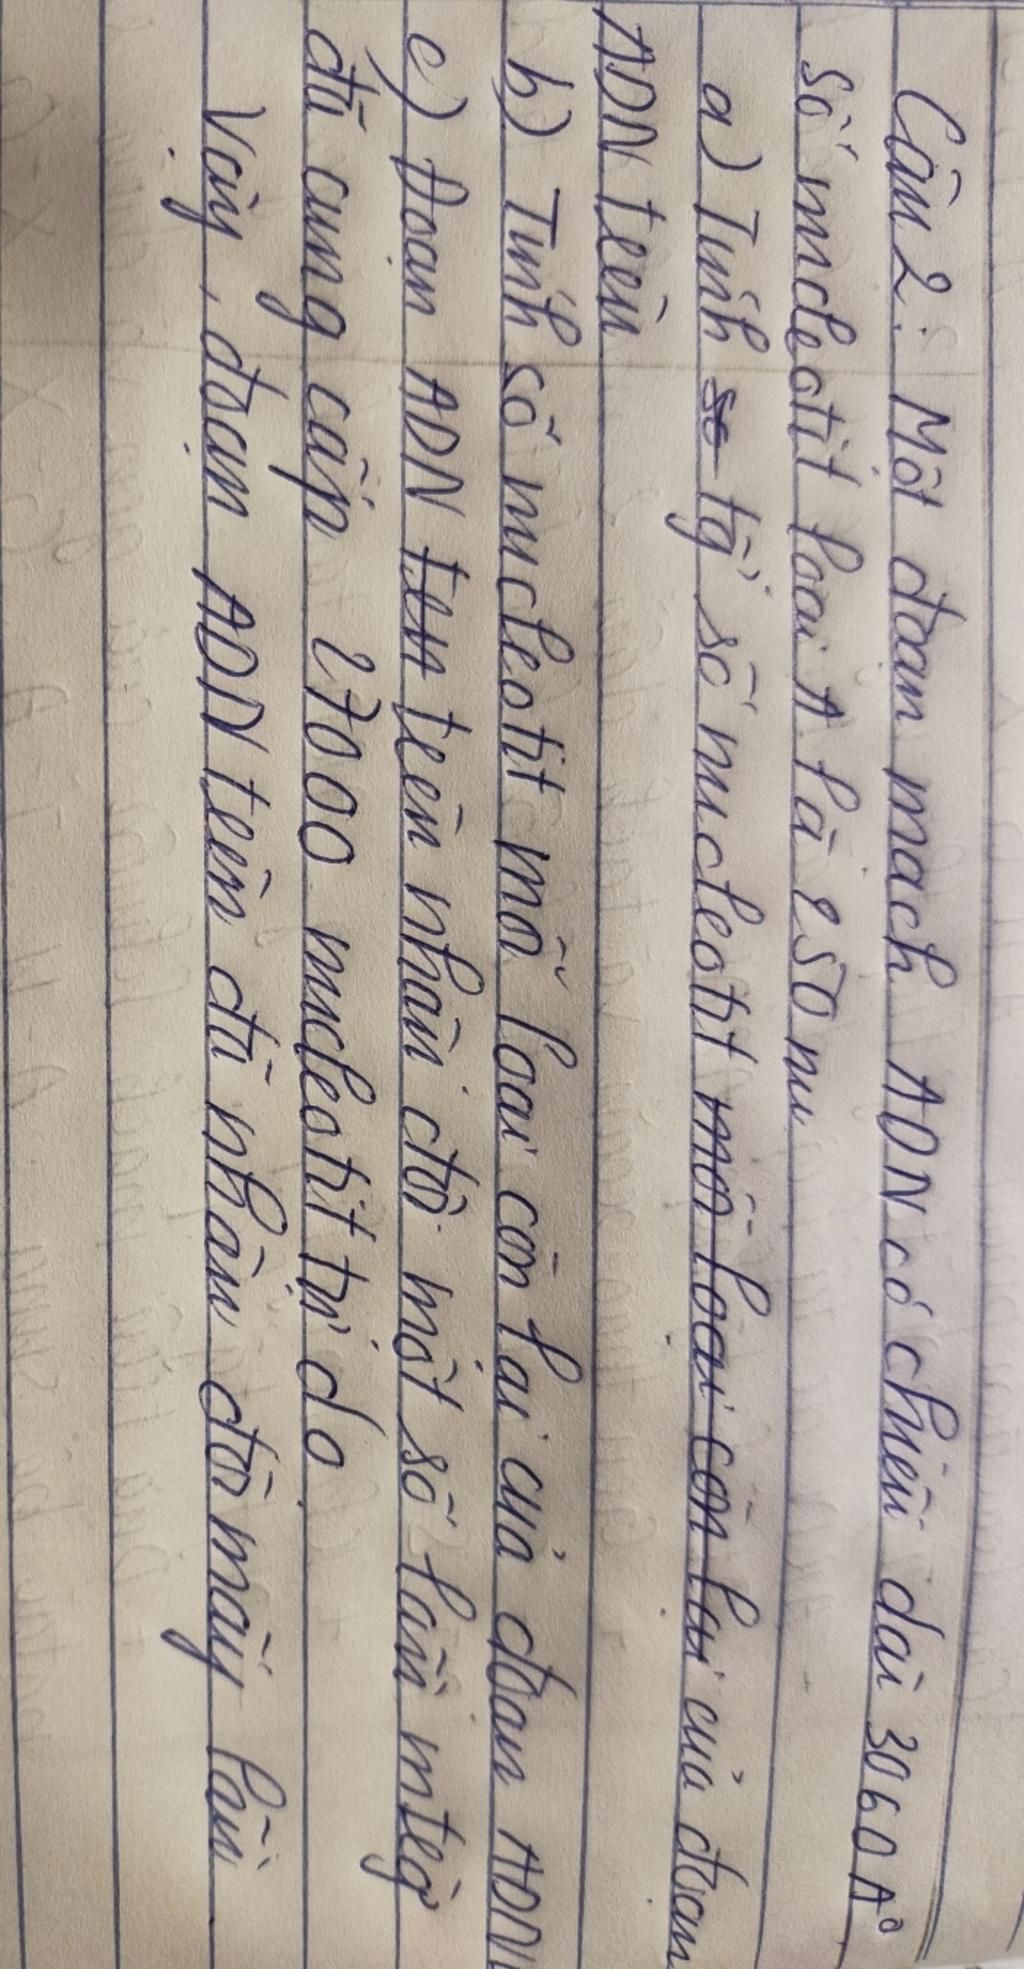 Câu 2: Một đoạn mạch ADN có chiều dài 3060 A°
Số nucleotit loại A là 250 nu
a) Tính so tổng số nucleotit mỗi loại còn lại của đoạn
ADN trên
b) Tính số nucleotit mỗi loại còn lại của đoạn ADN
c) Đoạn ADN trên trên nhân đôi một số lần mtég
đã cung cấp 27000 nucleotit tự do.
Vậy, đoạn ADN trên đã nhân đôi mấy lần